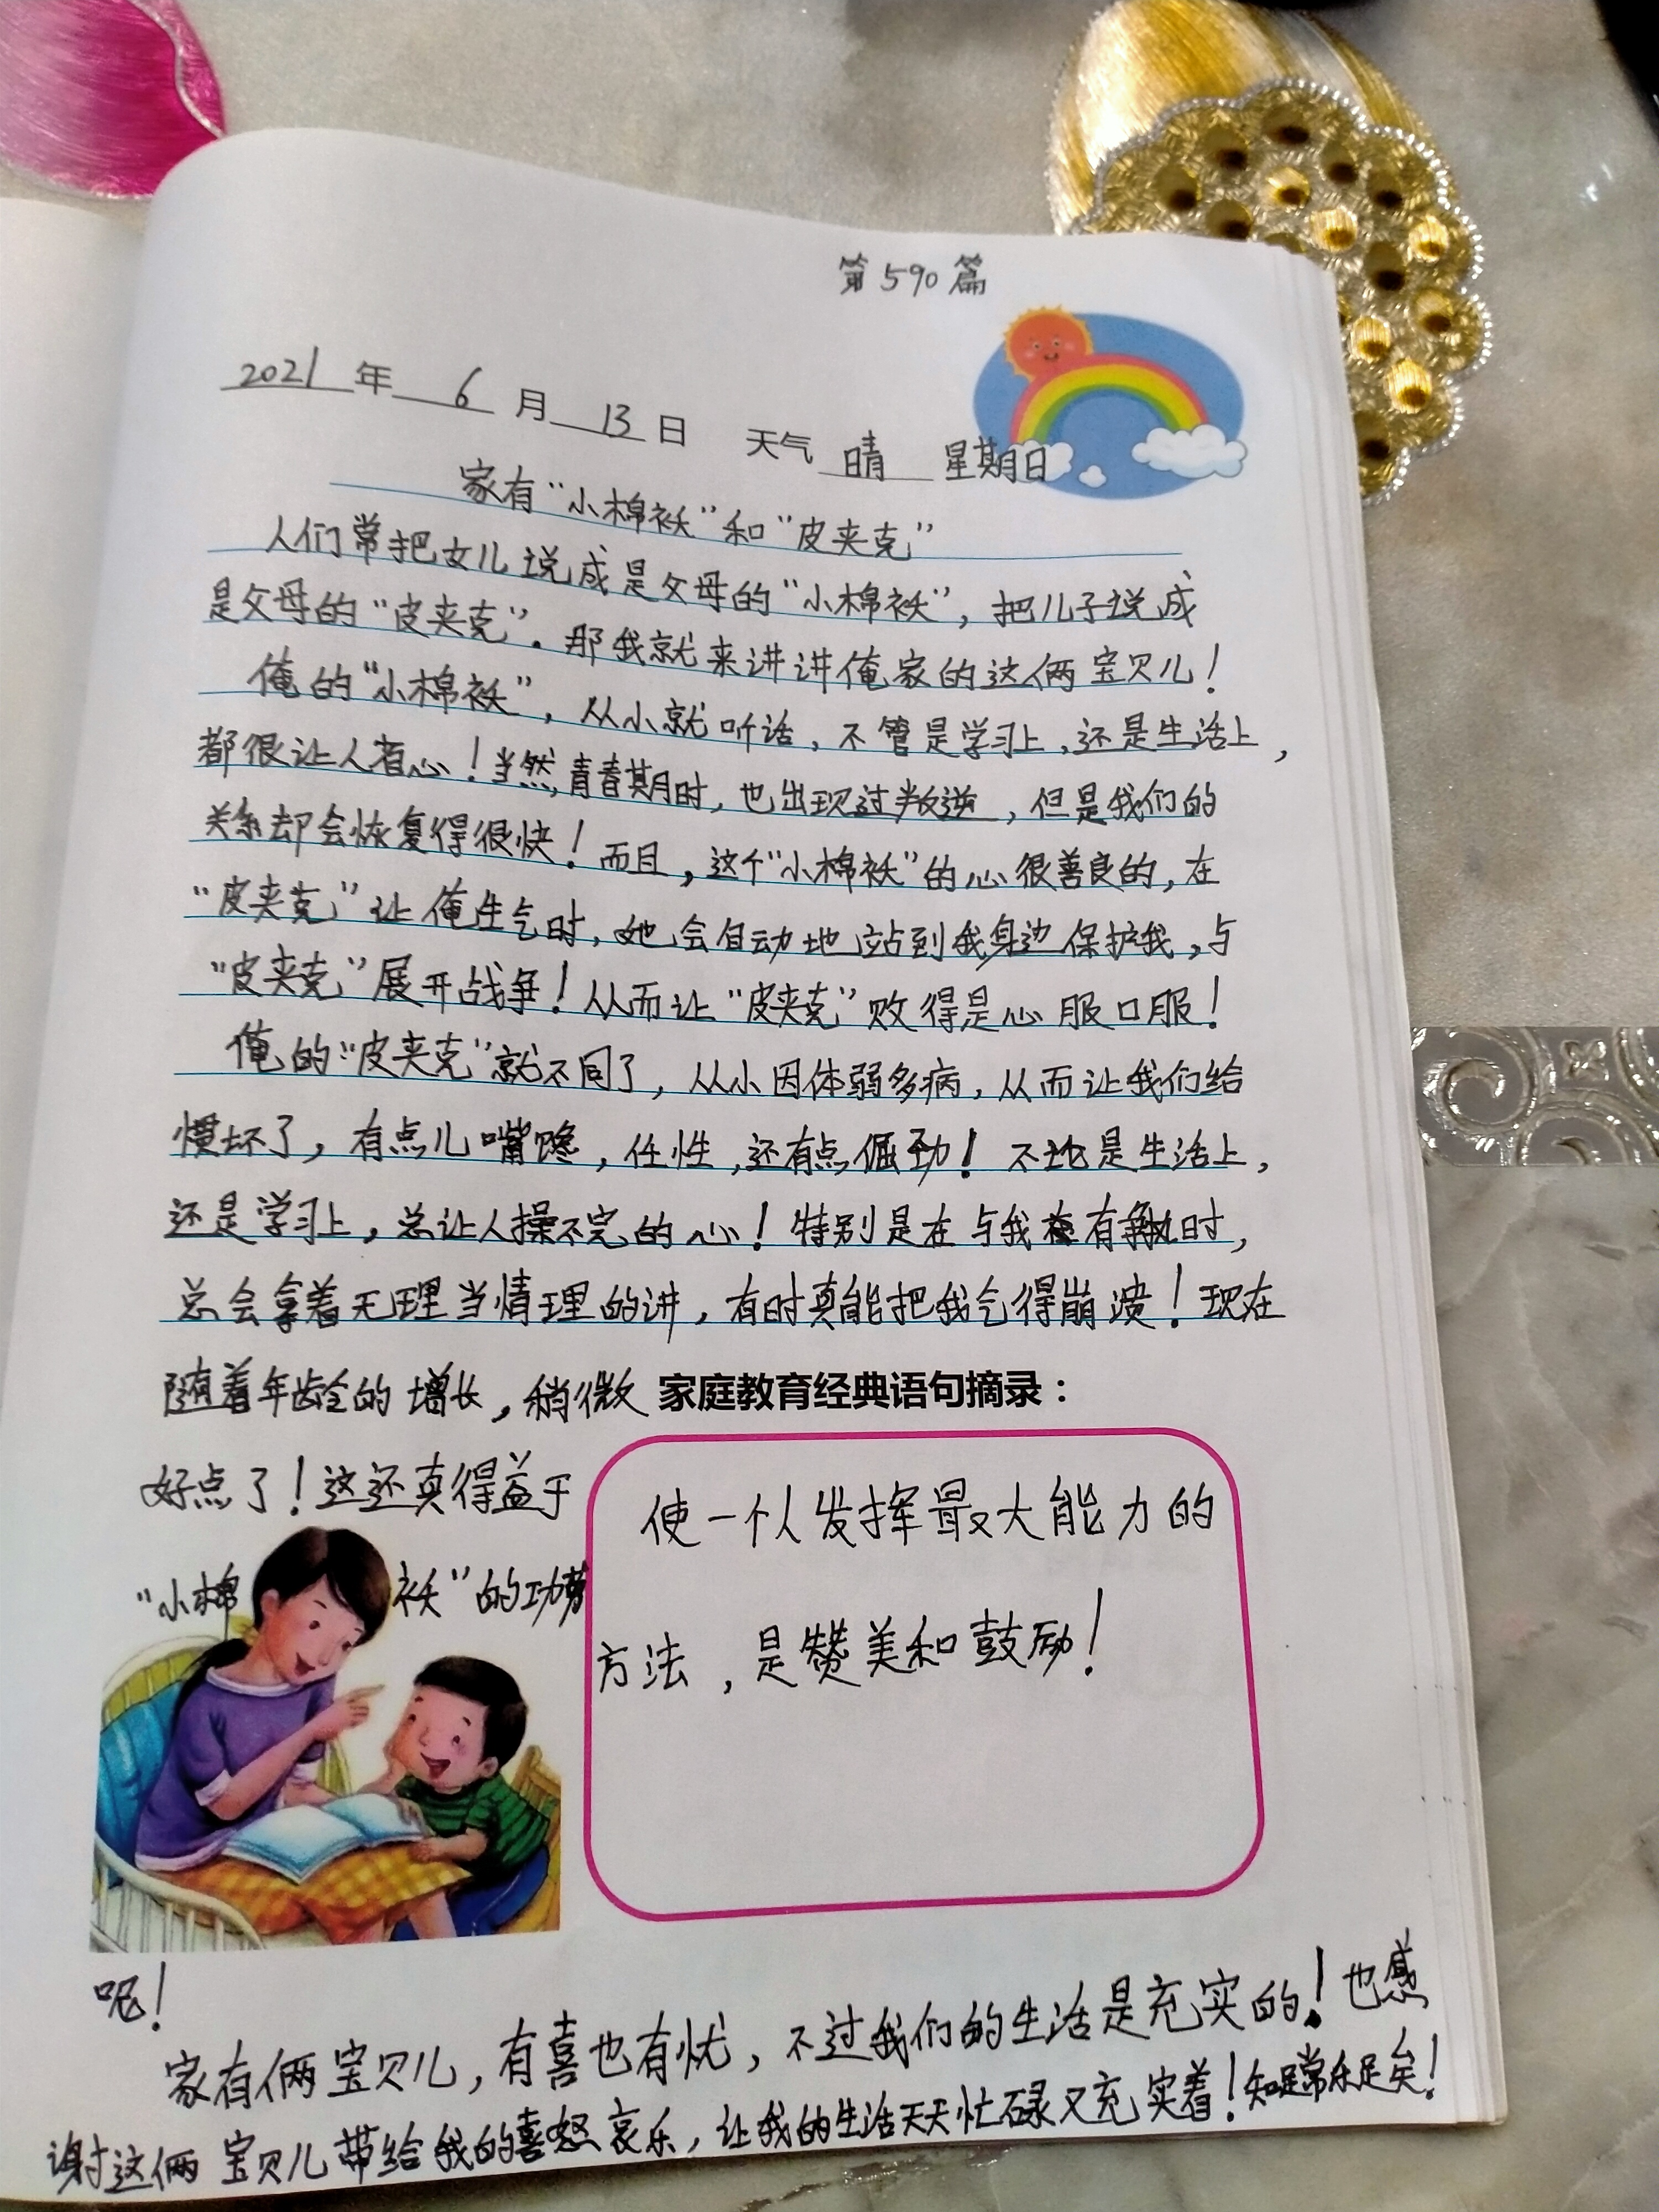 第590篇
2021年6月13日 天气 晴 星期日
家有“小棉袄”和“皮夹克”
人们常把女儿说成是父母的“小棉袄”，把儿子说成
是父母的“皮夹克”。那我就来讲讲俺家的这俩宝贝儿！
俺的“小棉袄”，从小就听话，不管是学习上，还是生活上，
都很让人省心！当然，青春期时，也出现过叛逆，但是我们的
关系却会恢复得很快！而且，这个“小棉袄”的心很善良的，在
“皮夹克”让俺生气时，她会自动地站到我身边保护我，与
“皮夹克”展开战争！从而让“皮夹克”败得是心服口服！
俺的“皮夹克”就不同了，从小因体弱多病，从而让我们给
惯坏了，有点儿嘴馋，任性，还有点倔劲！不论是生活上，
还是学习上，总让人操不完的心！特别是在与我有争执时，
总会拿着无理当情理的讲，有时真能把我气得崩溃！现在
随着年龄的增长，稍微
好点了！这还真得益于
“小棉袄”的功劳
家庭教育经典语句摘录：
使一个人发挥最大能力的
方法，是赞美和鼓励！
呢！
家有俩宝贝儿，有喜也有忧，不过我们的生活是充实的！也感
谢这俩宝贝儿带给我的喜怒哀乐，让我的生活天天忙碌又充实着！知足常乐足矣！